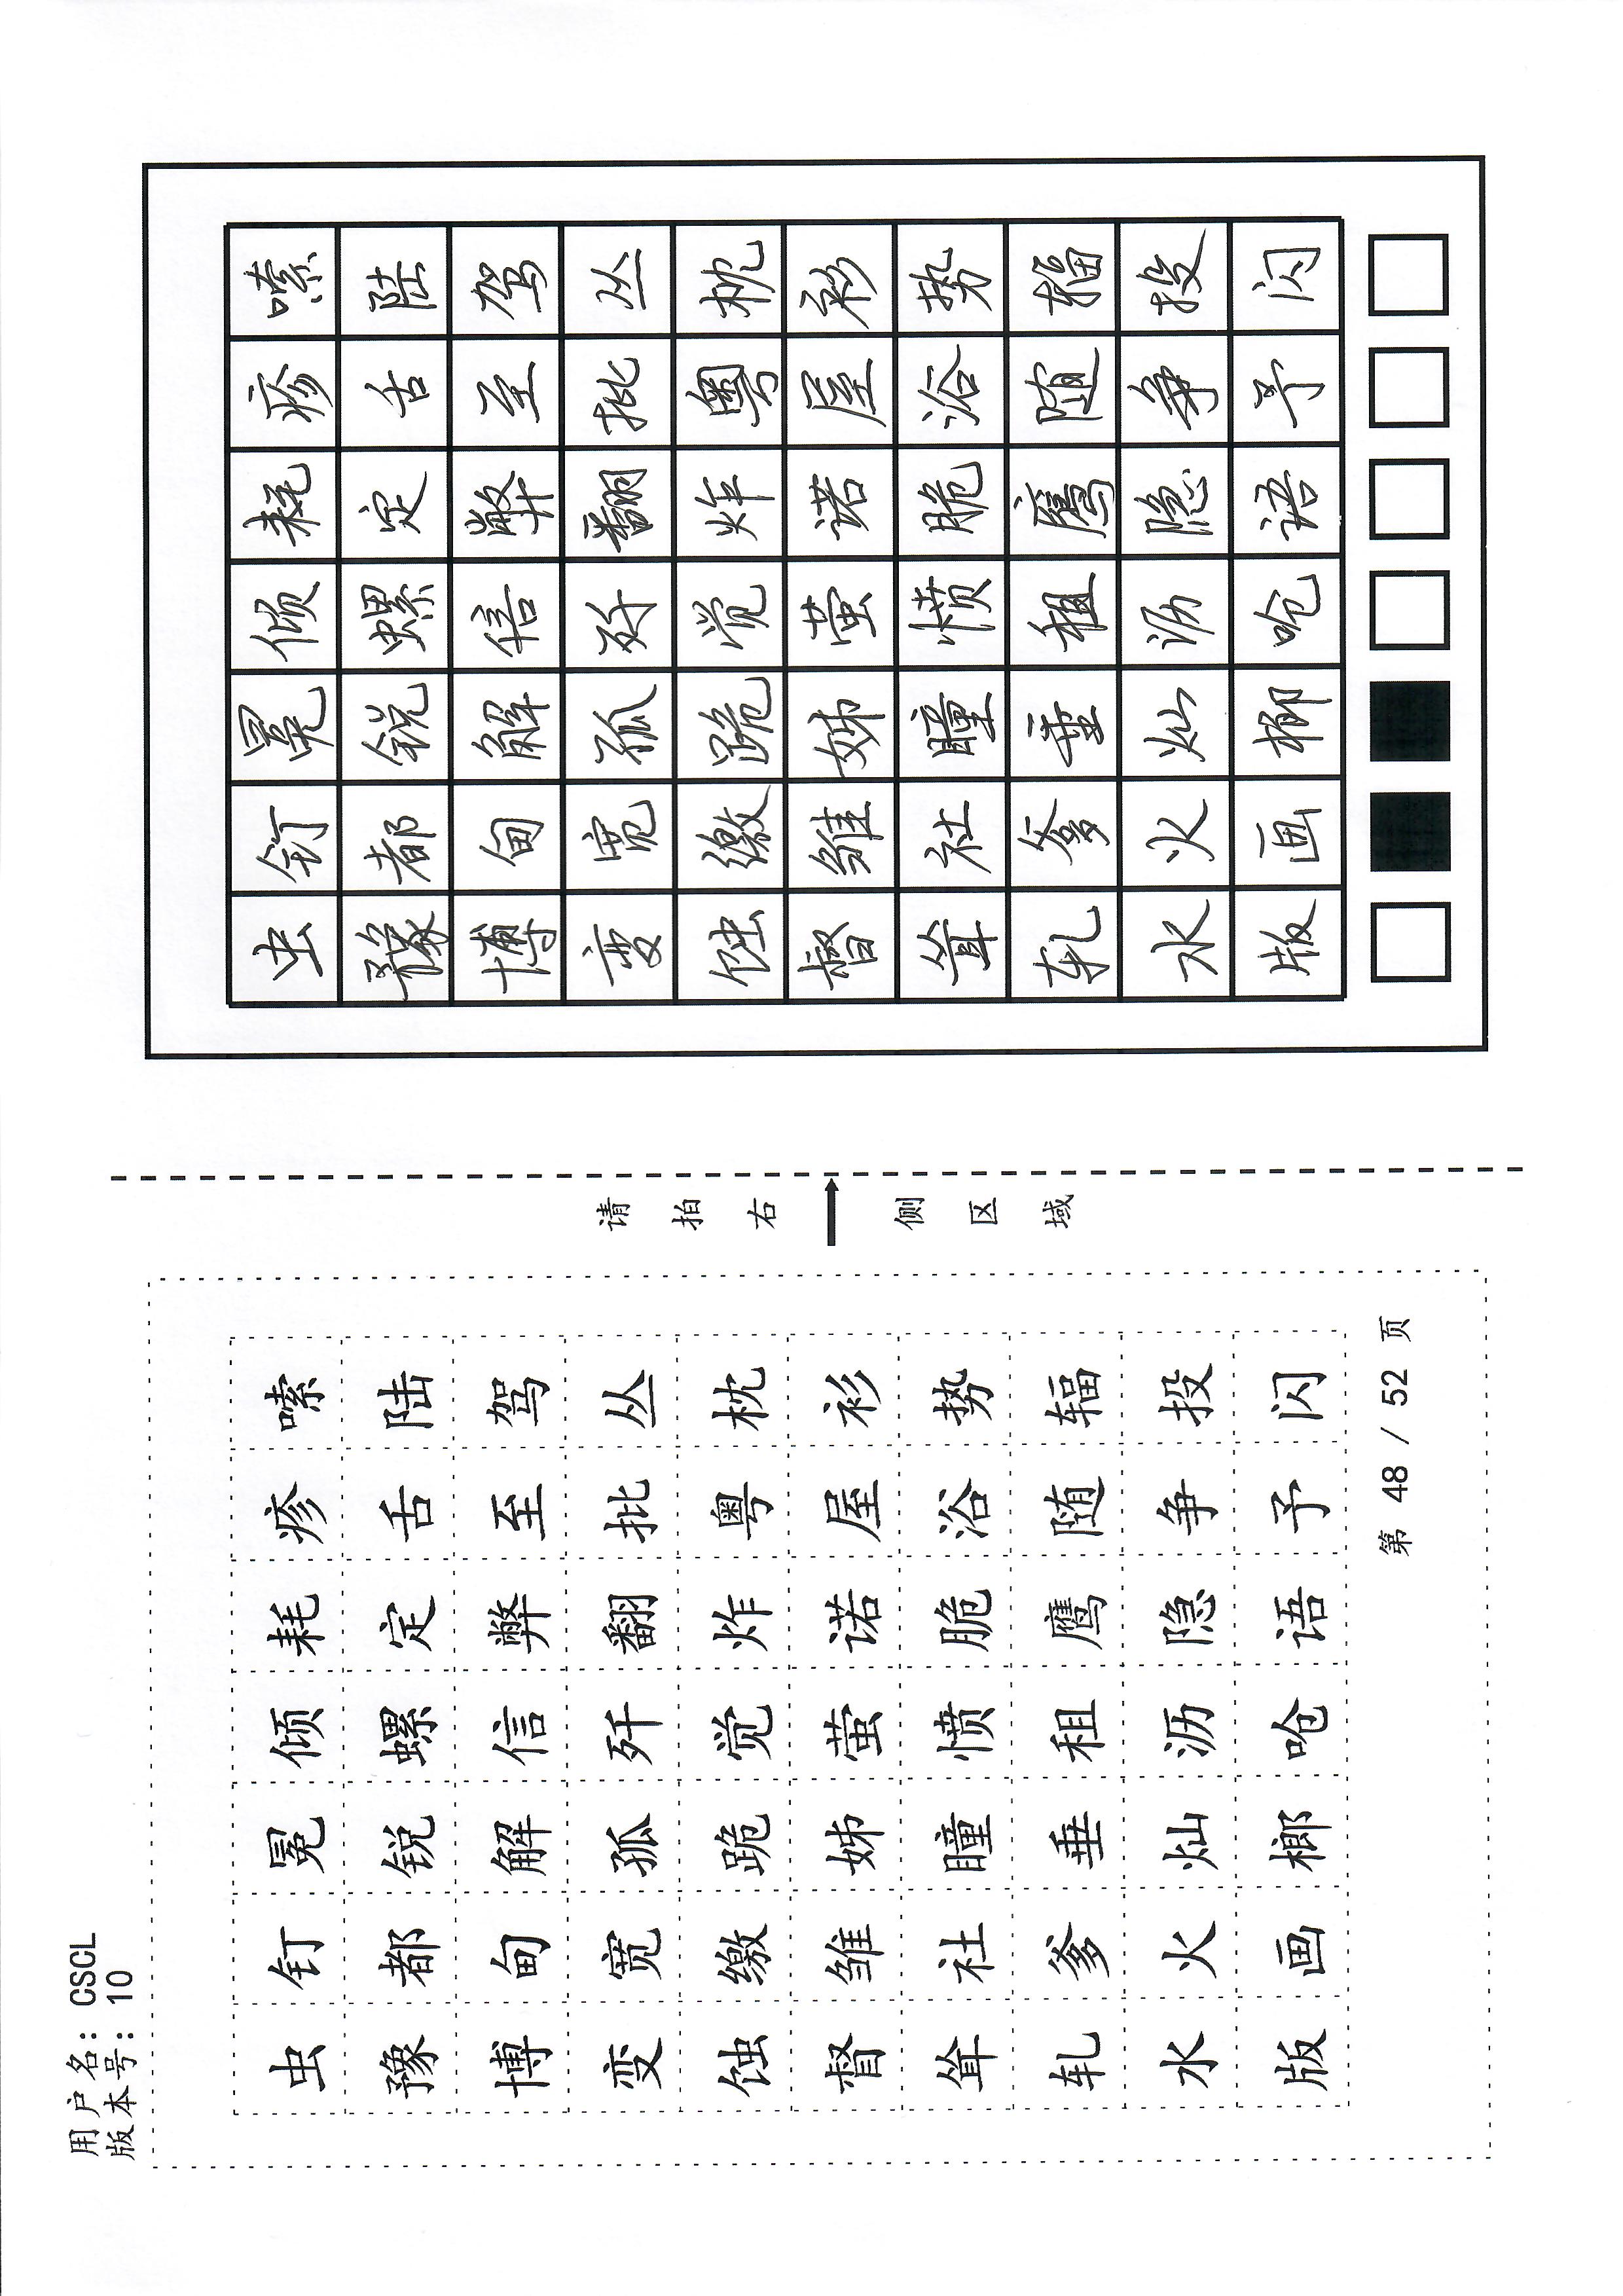 用户名: CSCL
版本号: 10
虫钉冕倾耗疹嗦
豫都锐螺定舌陆
博甸解信弊至驾
变宽孤歼翻批丛
蚀缴跪觉炸粤枕
督雏姊萤诺屋衫
耸社瞳愤脆浴势
轧爹垂租鹰随辐
水火灿沥隐争投
版画榔呛语予闪
第 48 / 52 页
请拍右侧区域
虫钉冕倾耗疹嗦
豫都锐螺定舌陆
博甸解信弊至驾
变宽孤歼翻批丛
蚀缴跪觉炸粤枕
督雏姊萤诺屋衫
耸社瞳愤脆浴势
轧爹垂租鹰随辐
水火灿沥隐争投
版画榔呛语予闪